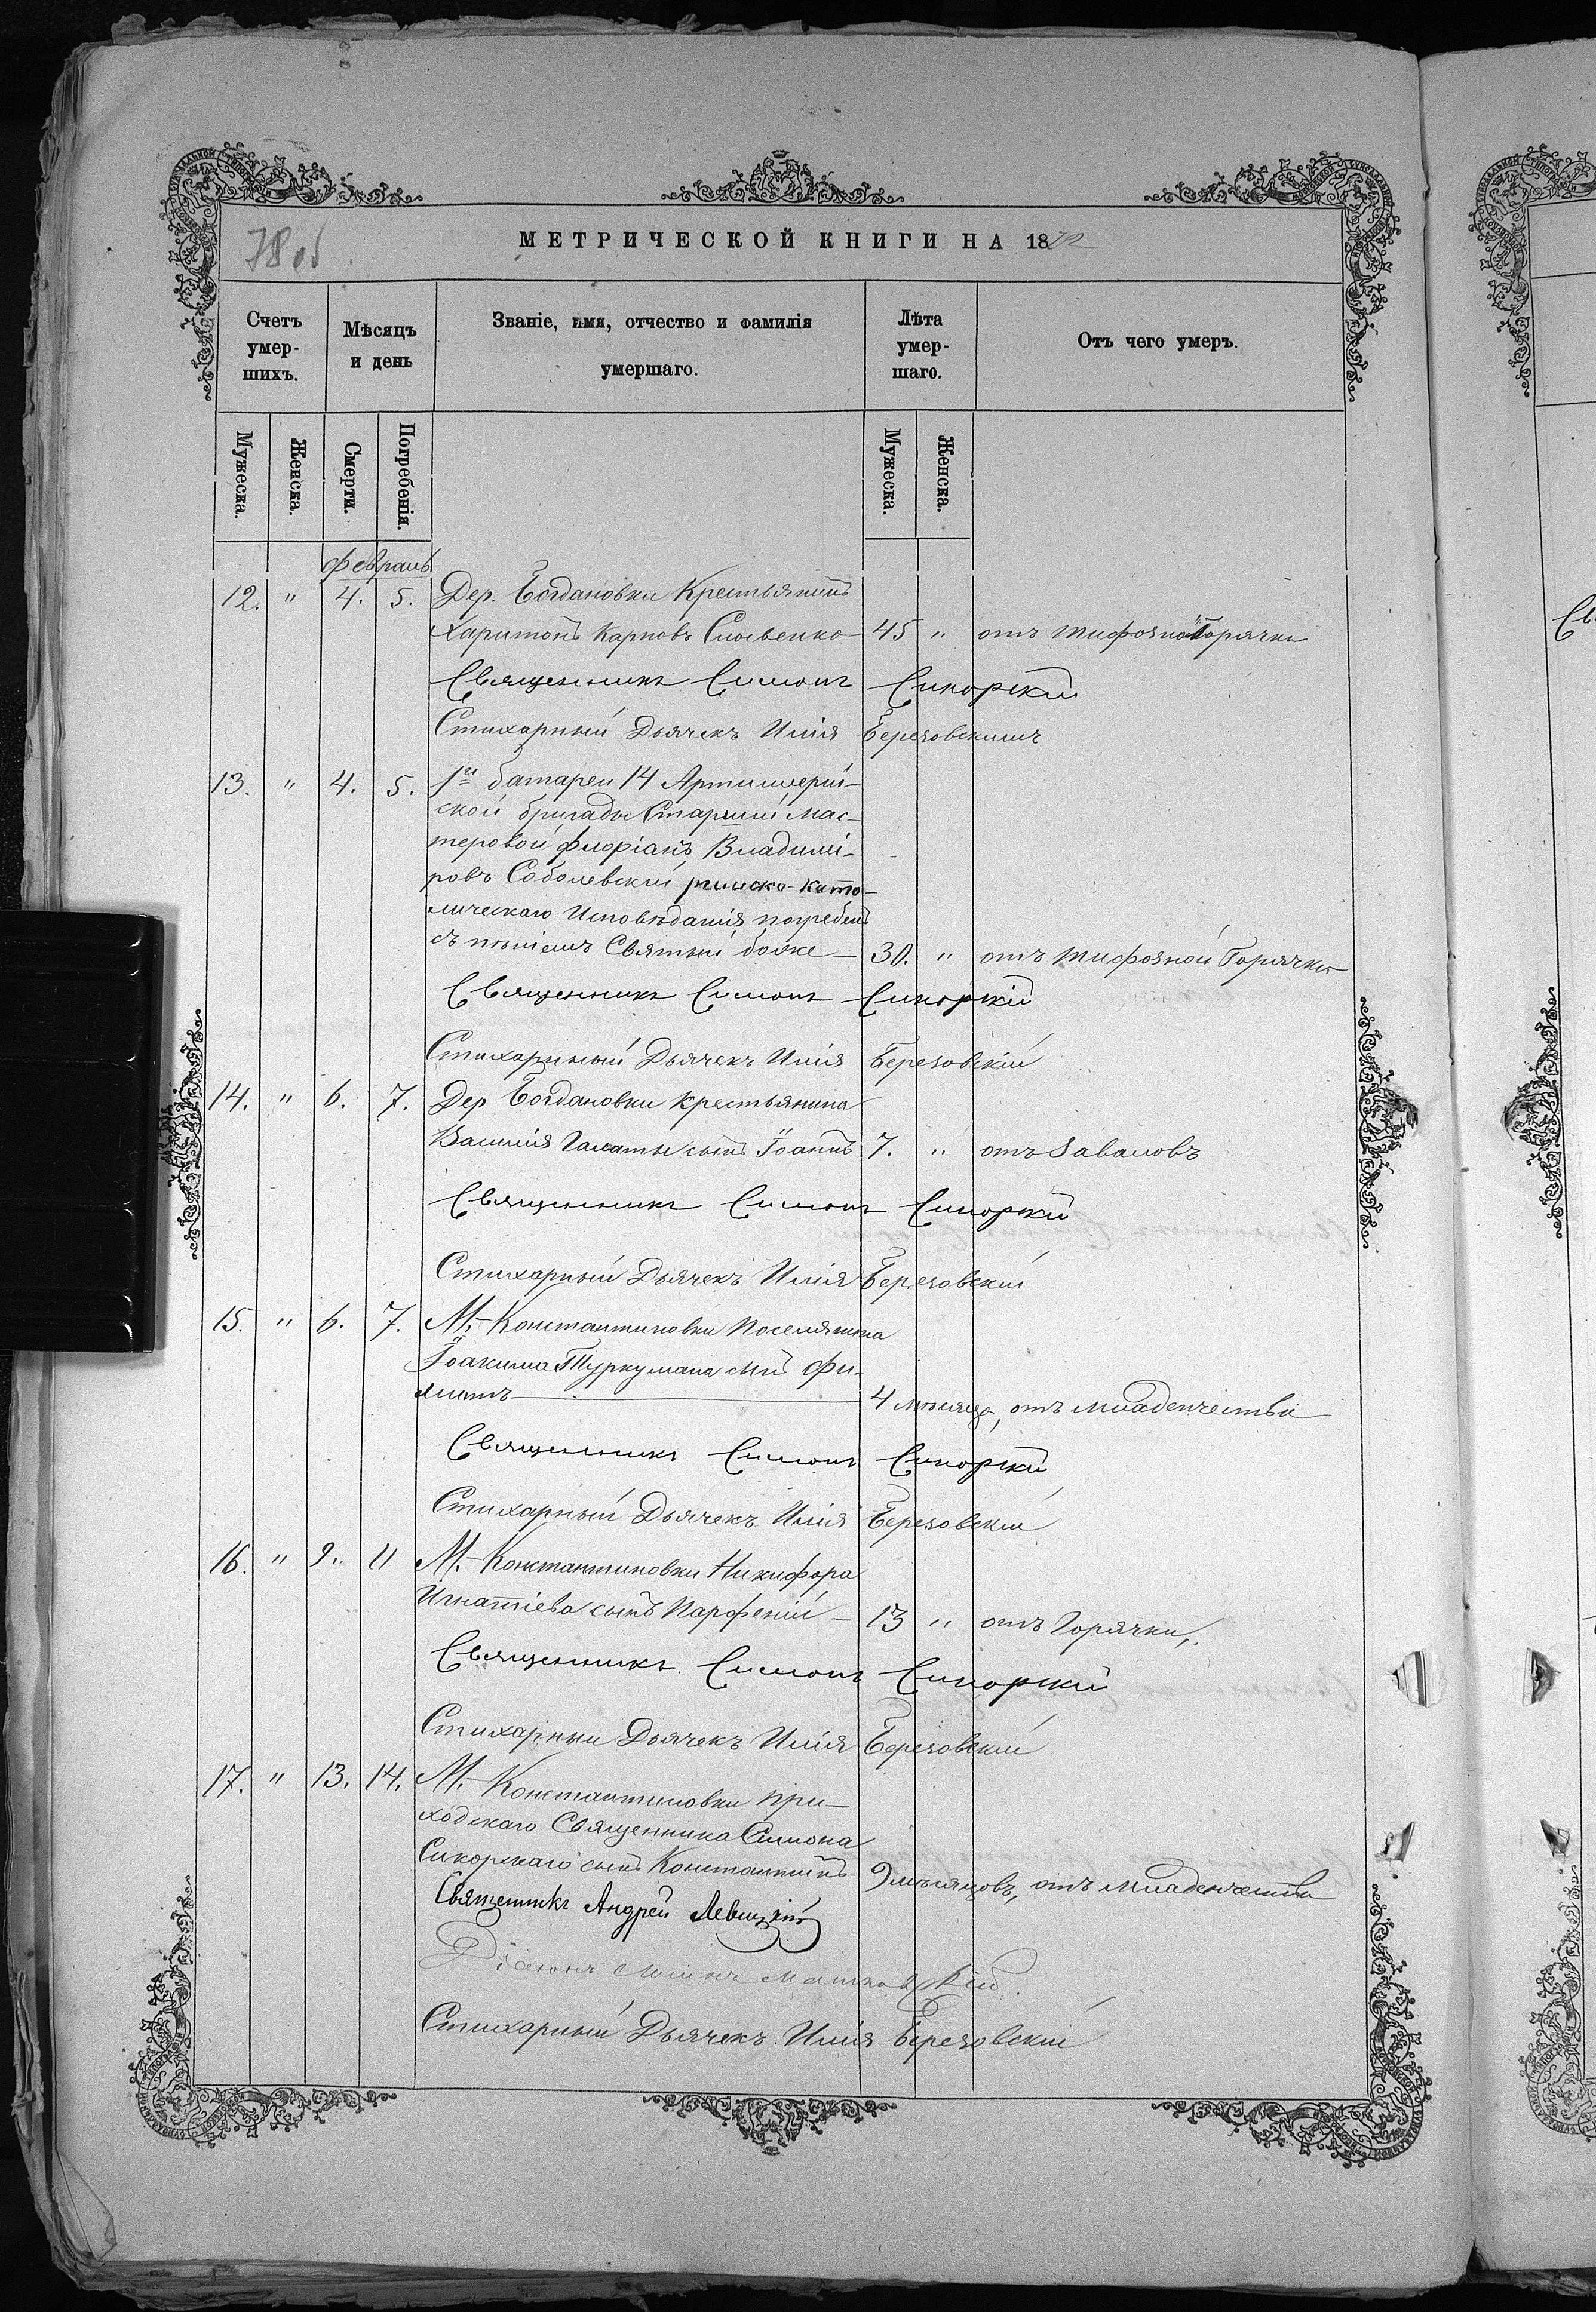 78 об
МЕТРИЧЕСКОЙ КНИГИ НА 1872
Счетъ умер- шихъ.
Мѣсяцъ и день
Званіе, имя, отчество и фамилія умершаго.
Лѣта умер- шаго.
Отъ чего умеръ.
Мужеска. Женска. Смерти. Погребенія. Мужеска. Женска.
Февраль
12. " 4. 5. Дер. Богдановки Крестьянинъ
Харитонъ Карповъ 45 " отъ тифозной горячки
Священникъ Симонъ Сикорскій
Стихарный Дьячекъ Илія Березовскій
13. " 4. 5. 1й батареи 14 Артиллерій-
ской бригады Старшій Мас-
теровой Флоріанъ Владимі-
ровъ Соболевскій римско-като-
лическаго Исповѣданія погребенъ
съ пѣніемъ Святый боже 30. " отъ тифозной Горячки
Священникъ Симонъ Сикорскій
Стихарный Дьячекъ Илія Березовскій
14. " 6. 7. Дер Богдановки крестьянина
Василія Галаты сынъ Іоаннъ 7. " отъ Заваловъ
Священникъ Симонъ Сикорскій
Стихарный Дьячекъ Илія Березовскій
15. " 6. 7. М.-Константиновки Поселянина
Іоакима Туркумана сынъ Фи-
липпъ 4 мѣсяца, отъ младенчества
Священникъ Симонъ Сикорскій
Стихарный Дьячекъ Илія Березовскій
16. " 9. 11 М.-Константиновки Никифора
Игнатіева сынъ Парфеній 13 " отъ Горячки,
Священникъ Симонъ Сикорскій
Стихарный Дьячекъ Илія Березовскій
17. " 13. 14. М.-Константиновки при-
ходскаго Священника Симона
Сикорскаго сынъ Константинъ 9 мѣсяцовъ, отъ младенчества
Священникъ Андрей Левицкій
Діаконъ
Стихарный Дьячекъ Илія Березовскій